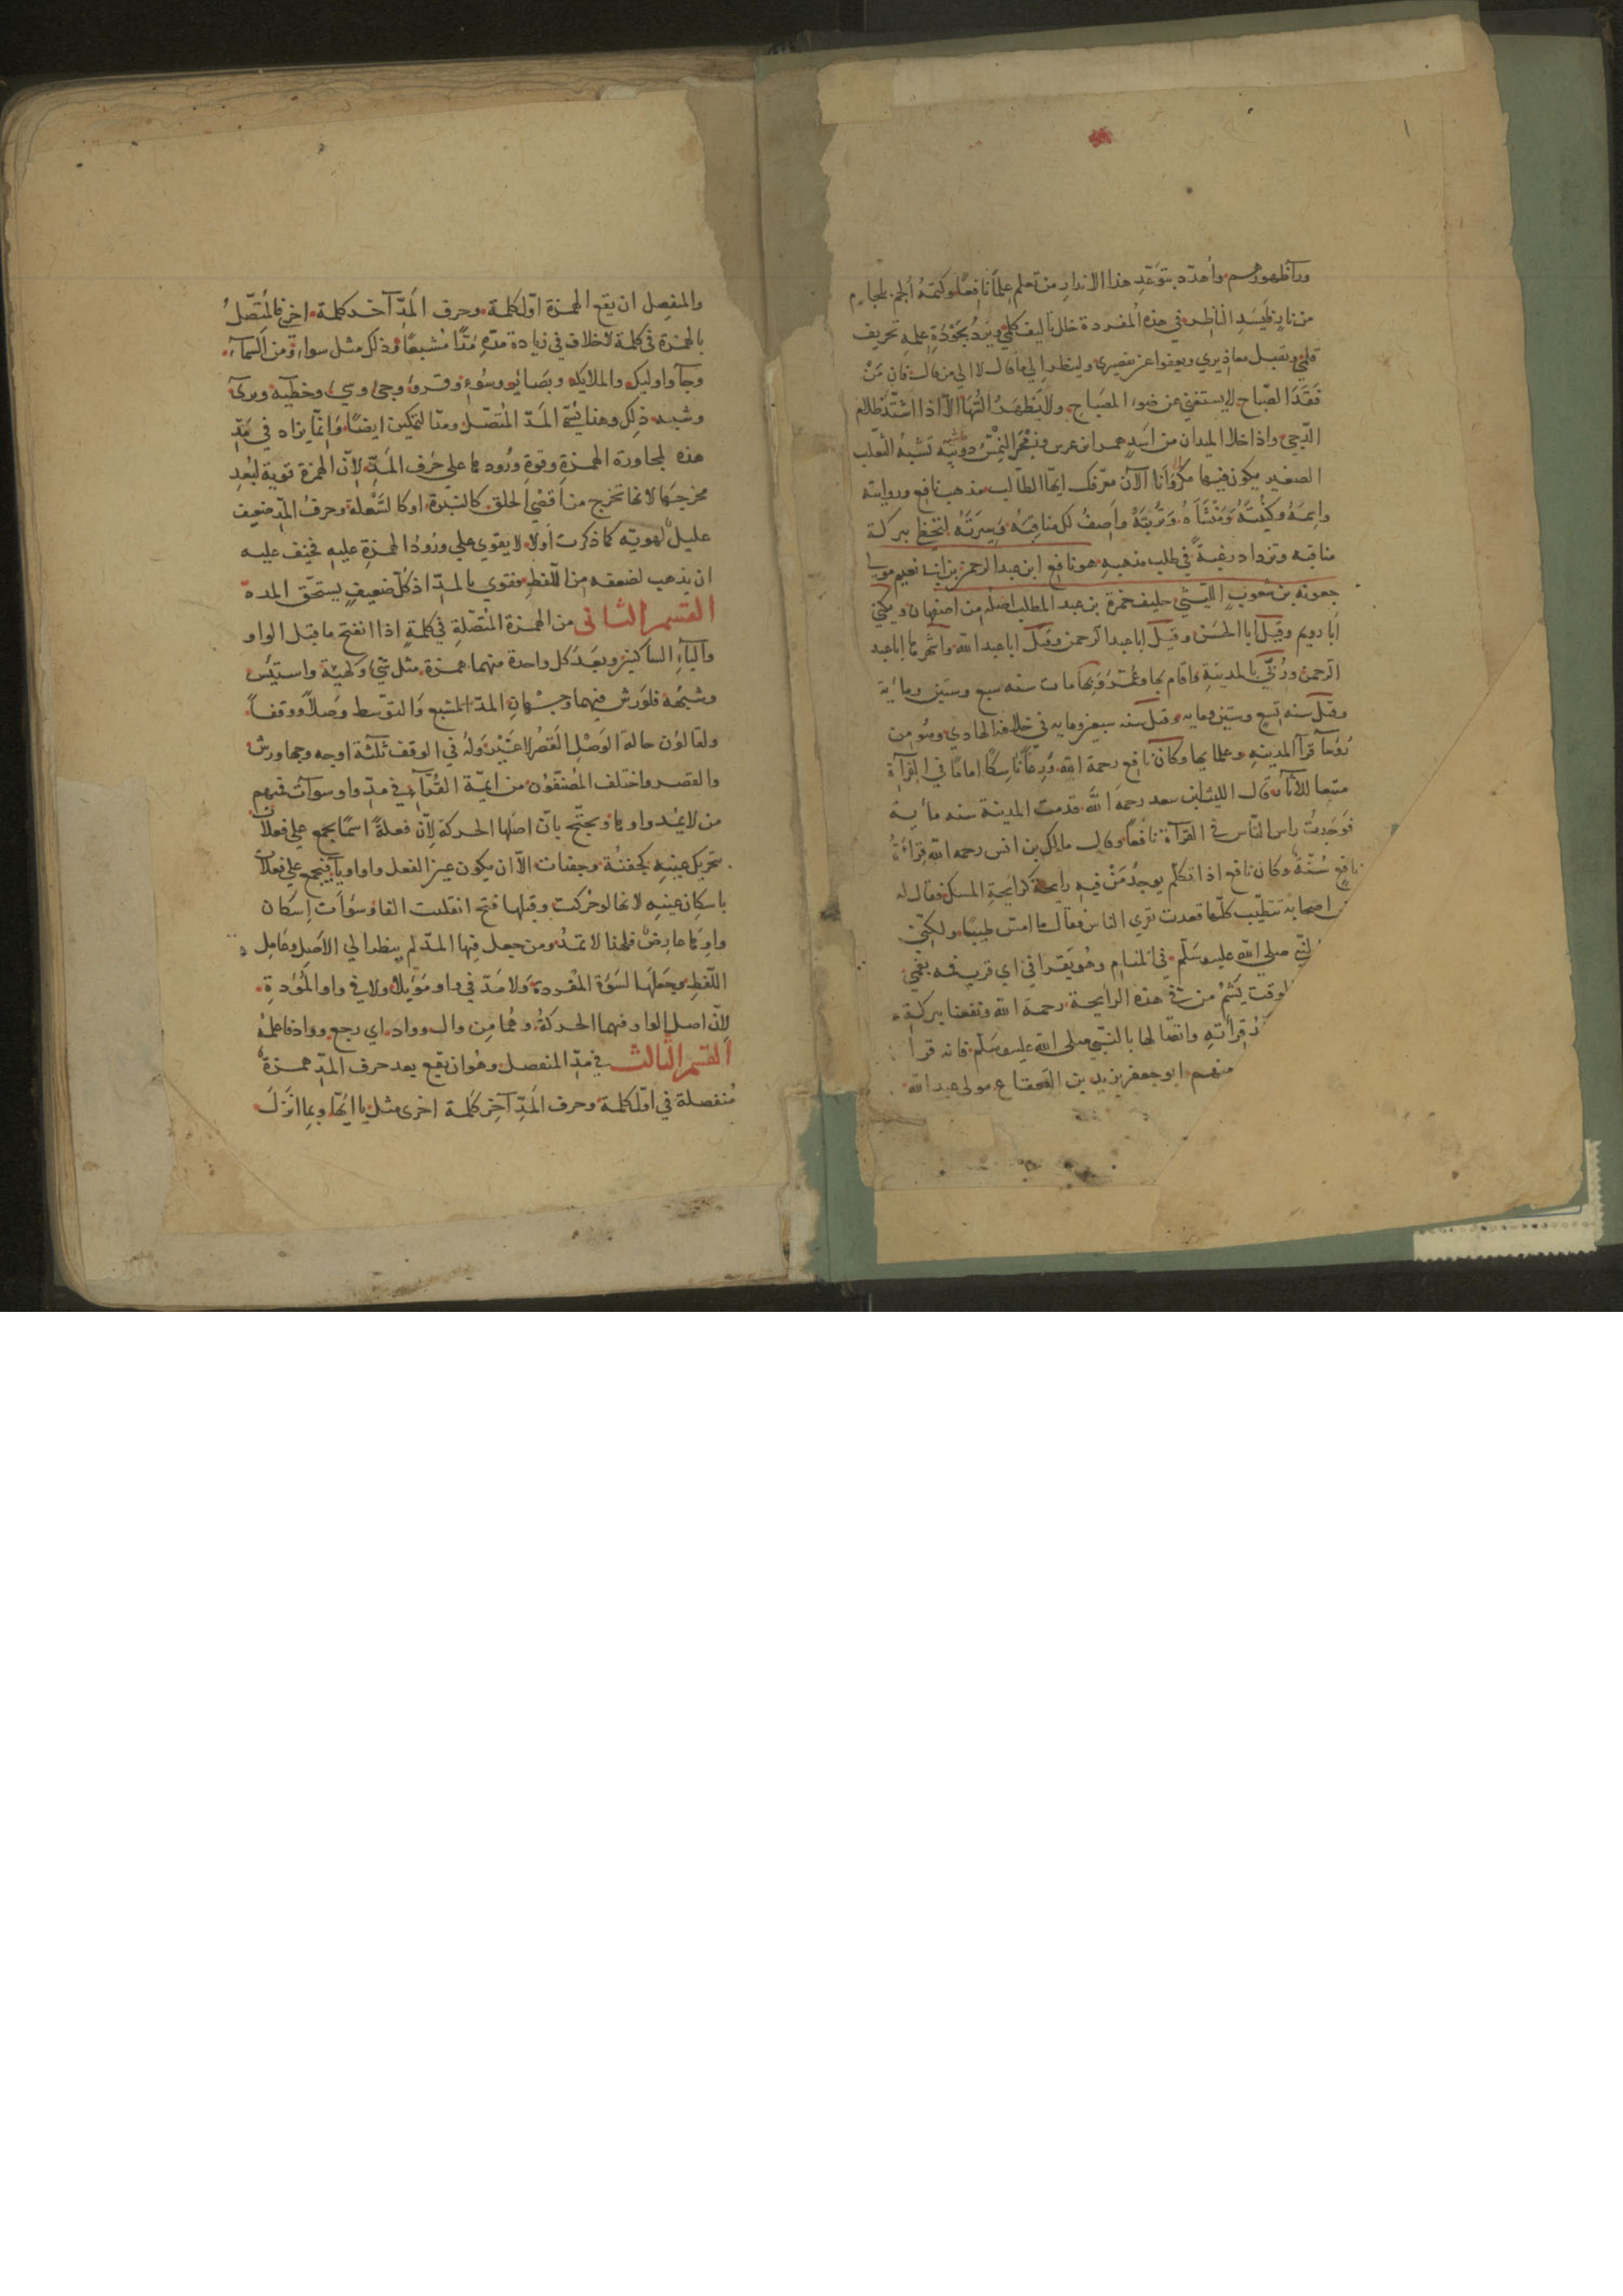 ورآ ظهورهم واُحدّه بتوعّدِ هذا الانذارِ من تعلم علماً نافعًا وكتمهُ اُلجم بلجامٍ
من نارٍ فليسدِ الناظر في هذه المفردة خلل تأليف كلمي ويردُ بجَودَةِ علمهِ تحريف
قلمي ويقبل معاذيري ويعفوا عن تقصيري ولينظر الي ما قال لا الي من قال فان مَنْ
فَقَدَ الصّباح لا يستغني عن ضوء المصباح ولا يَظهَرُ السُّهَا الّا اذا اشتدّ ظلام
الدّجي واذا خلا الميدان من اَسَدٍ ابن عرس النِمْسُ دويبّه تشبهُ الثعلب
الصغير يكون فيها وَاَنا الآن معرّفك ايّها الطّالب مذهب نافع وروايته
واسمَهُ وكُنْيَتَهُ وَمَنْشَأَهُ وَاَصِفُ لك مناقِبَهُ وَسِيرَتَهُ لتحظ ببركة
مناقبه وتزداد رغبةً في طلب مذهبهِ هو نافع ابن عبد الرحمن بن ابي نعيم مولي
جعونه بن شعوبٍ الليثي حليف حمزة بن عبد المطلب اصلُه من اصفهان ويكني
اَبا رويم وقيلَ ابا الحسَن وقيلَ ابا عبد الرحمن وقيلَ ابا عبد الله واشهرها ابا عبد
الرحمن ورُبّيَ بالمدينةِ واقام بها وعُمّرَ وَبِهَا مات سنه سبع وستين ومائة
وقيلَ سنه تسعٍ وستين ومايه وقيلَ سنه سبعين ومايه في خلافة الهادي وهُو من
قرآ المدينهِ وعلمايها وكانَ نافع رحمة الله وَرِعًا نَاسِكًا امامًا في القرآءة
متبعا للآثار قال الليث ابن سعد رحمهُ الله قدمت المدينة سنه مأية
فوَجَدتُ راس النّاس في القرآءة نافعاً وقال مالك بن انس رحمه الله قِراءَةُ
نافعٍ سُنّةٌ وكان نافع اذا تكلم يوجدُ مِنْ فيهِ رايحة كرايحةِ المسك فقال له
اصحابه تتطيّب كلّما قعدت تقرِي الناس فقال ما امسّ طيبًا ولكنّي
النّبيّ صلي الله عليه وسَلّم في المنامِ وهُو يَقرا في اي قريب فيه بفمي
الوقت يَشُمّ من فيّ هذه الرايحة رحمة الله ونفعنا ببركته
قِرأتهِ واتّصالها بالنّبي صلي الله عليه وسَلّم فانه قرا
منهم ابو جعفر يزيد بن القعقاع مولى عبد الله
والمنفصِل ان يقع الهمزة اوّل كلمة وحرف المَدّ آخر كلمة اخري فالمُتصّلُ
بالهمزة في كلمة لا خلاف في زيادة مَدّهِ مَدًّا مُشبعًا وذلك مثل سواء ومن السّماء
وجآء واوليك والملايكه وبصائر وسُوء وقروء وجئ وسئ وخطيئه وبرئ
وشبه ذلِك وهنا يُسَمّي المَدّ المُتصّل ومدّ التمكين ايضًا وَانّما يزاد في مَدِّ
هذه لمجاورة الهمزةِ وقوةِ وُرُودها علي حَرف المَدِّ لاِنّ الهَمزة قوية لبُعدِ
مخرجها لانها تخرج من اَقصَي الحلق كالنبرةِ او كالسَّعْلة وحرفُ المدّ ضعيف
عليلٌ لهويّه كما ذكرت اَولًا لا يقوي علي ورُودُ الهمزةِ عليهِ فخيف عليه
ان يذهب لضعفه مِن اللّفظِ فقوي بالمدّ اذ كلّ ضعيفٍ يستحّق المدة
القسم الثاني من الهمزة المُتّصلةِ في كلمةٍ اذا انفتح ما قبل الواو
والياَءِ الساكنين وبعَدَ كل واحدة منهما همزة مثل شيء وكهيئة واستيئس
وشبهُه فلورش فيهما وجهانِ المدّ المشبع وَالتوّسط وَصلاً ووقفاً
ولقالوُن حالة الوصْلِ القصْرُ لا غَيْر وَلهُ في الوقف ثلثة اوجه وجها ورش
والقصر واختلف المصُنفون من ايمّة القُرّآءِ في مدّ واو سوآت فمنهم
من لا يمُد واوها ويحتّج بانّ اصلها الحركة لاِنّ فعلةً اسمًا يجمع علي فعلات
بتحريك عينِهِ كجفنُة وجفنات الاّ ان يكون عين الفعل واوا اويآءً فيجمع علي فعلات
باسكان عينِهِ لانها لو حُركت وقبلها فتح انقلبت الفا وسَوْآت اِسكان
واوِها عارِضٌ فلهذا لا تمدُ ومن جعل فِيها المدّ لم ينظر الي الاَصِل وعَامِل
اللّفظِ وجَعَلَها لسَوْءة المفردة وَلا مَدّ في واو مَوْئِلاً ولا في واو الموْؤدةِ
لاِنّ اصل الواو فيهما الحركةُ وهُما مِن وال وواد اي رجع وواد فاعلمُ
القسم الثالث في مدّ المنفصل وهُو ان يقع بعد حرف المدّ همزةٌ
مُنفصلة في اوّل كلمة وحرف المَدِّ آخِر كلمة اخرى مثل يا ايُّها وبما انزَلَ